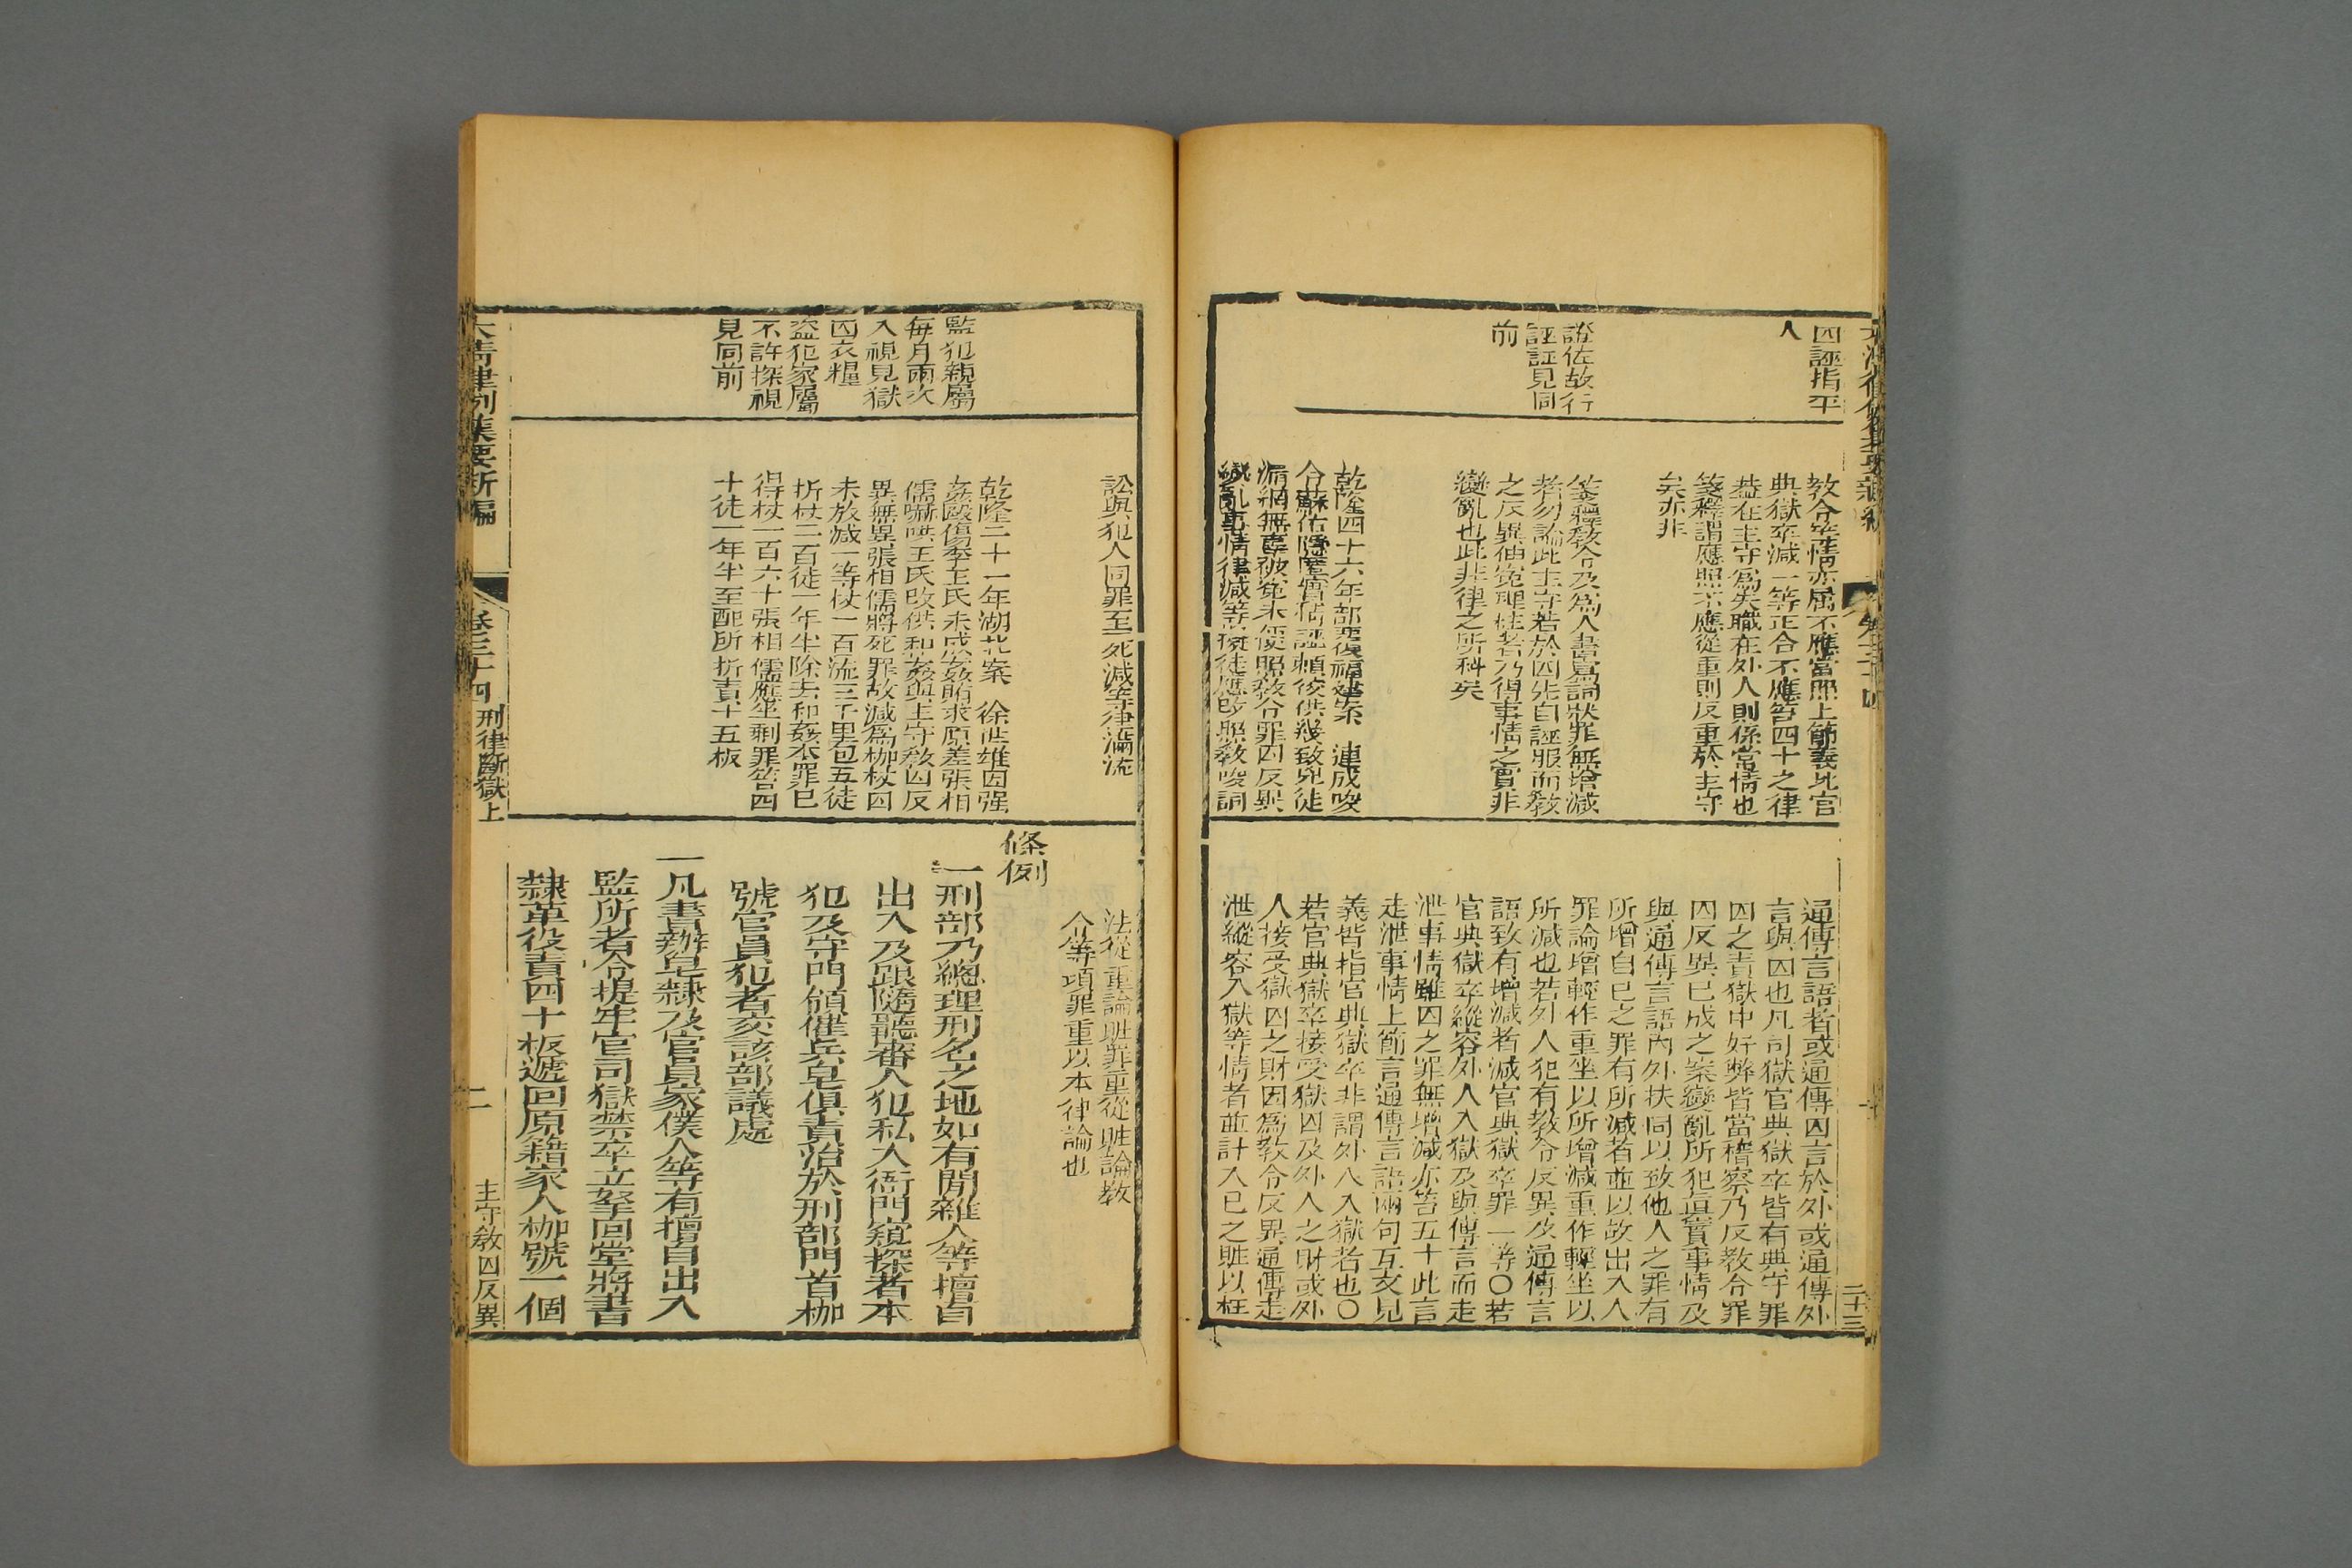 囚誣指平
人
證佐故行
誣証見同
前
教令卒情亦屬不應當照上節義比官
典獄卒減一等正合不應笞四十之律
蓋在主守爲失職在外人則係常情也
箋釋謂應照不應從重則反重於主守
矣亦非
箋釋教令及爲人書寫詞狀罪無增減
者勿論此主守若於囚先自誣服而教
之反異伸寃理枉者乃得事情之實非
變亂也此非律之所科矣
乾隆四十六年部覆福建案　連成唆
令蘇佑隱匿實情誣賴後供幾致兇徒
漏網無辜被寃未便照教令罪囚反異
變亂事情律減等擬徒應改照教唆詞
通傳言語者或通傳囚言於外或通傳外
言與囚也凡司獄官典獄卒皆有典守罪
囚之責獄中奸弊皆當稽察乃反教令罪
囚反異已成之案變亂所犯眞實事情及
與通傳言語內外扶同以致他人之罪有
所增自己之罪有所減者並以故出入人
罪論增輕作重坐以所增減重作輕坐以
所減也若外人犯有教令反異及通傳言
語致有增減者減官典獄卒罪一等○若
官典獄卒縱容外人入獄及與傳言而走
泄事情雖囚之罪無增減亦笞五十此言
走泄事情上節言通傳言語兩句互文見
義皆指官典獄卒非謂外人入獄者也○
若官典獄卒接受獄囚及外人之財或外
人接受獄囚之財因爲教令反異通傳走
泄縱容入獄等情者並計入己之贓以枉
二十三
監犯親屬
每月兩次
入視見獄
囚衣糧
盜犯家屬
不許探視
見同前
訟與犯人同罪至死減等律滿流
乾隆二十一年湖北案　徐世雄因强
姦毆傷李王氏未成姦賄求原差張相
儒嚇哄王氏改供和姦與主守教囚反
異無異張相儒將死罪故減爲枷杖囚
未放減一等杖一百流三千里包五徒
折杖二百徒一年半除去和姦本罪已
得杖一百六十張相儒應坐剩罪笞四
十徒一年半至配所折責十五板
法從重論贓罪重從贓論教
令等項罪重以本律論也
條例
一刑部乃總理刑名之地如有閒雜人等擅自
出入及跟隨聽審人犯私入衙門窺探者本
犯及守門領催兵皂俱責治於刑部門首枷
號官員犯者交該部議處
一凡書辦皂隸及官員家僕人等有擅自出入
監所者令提牢官司獄禁卒立拏回堂將書
隸革役責四十板遞回原籍家人枷號一個
大清律例集要新編
卷三十四
刑律斷獄上
二
主守教囚反異